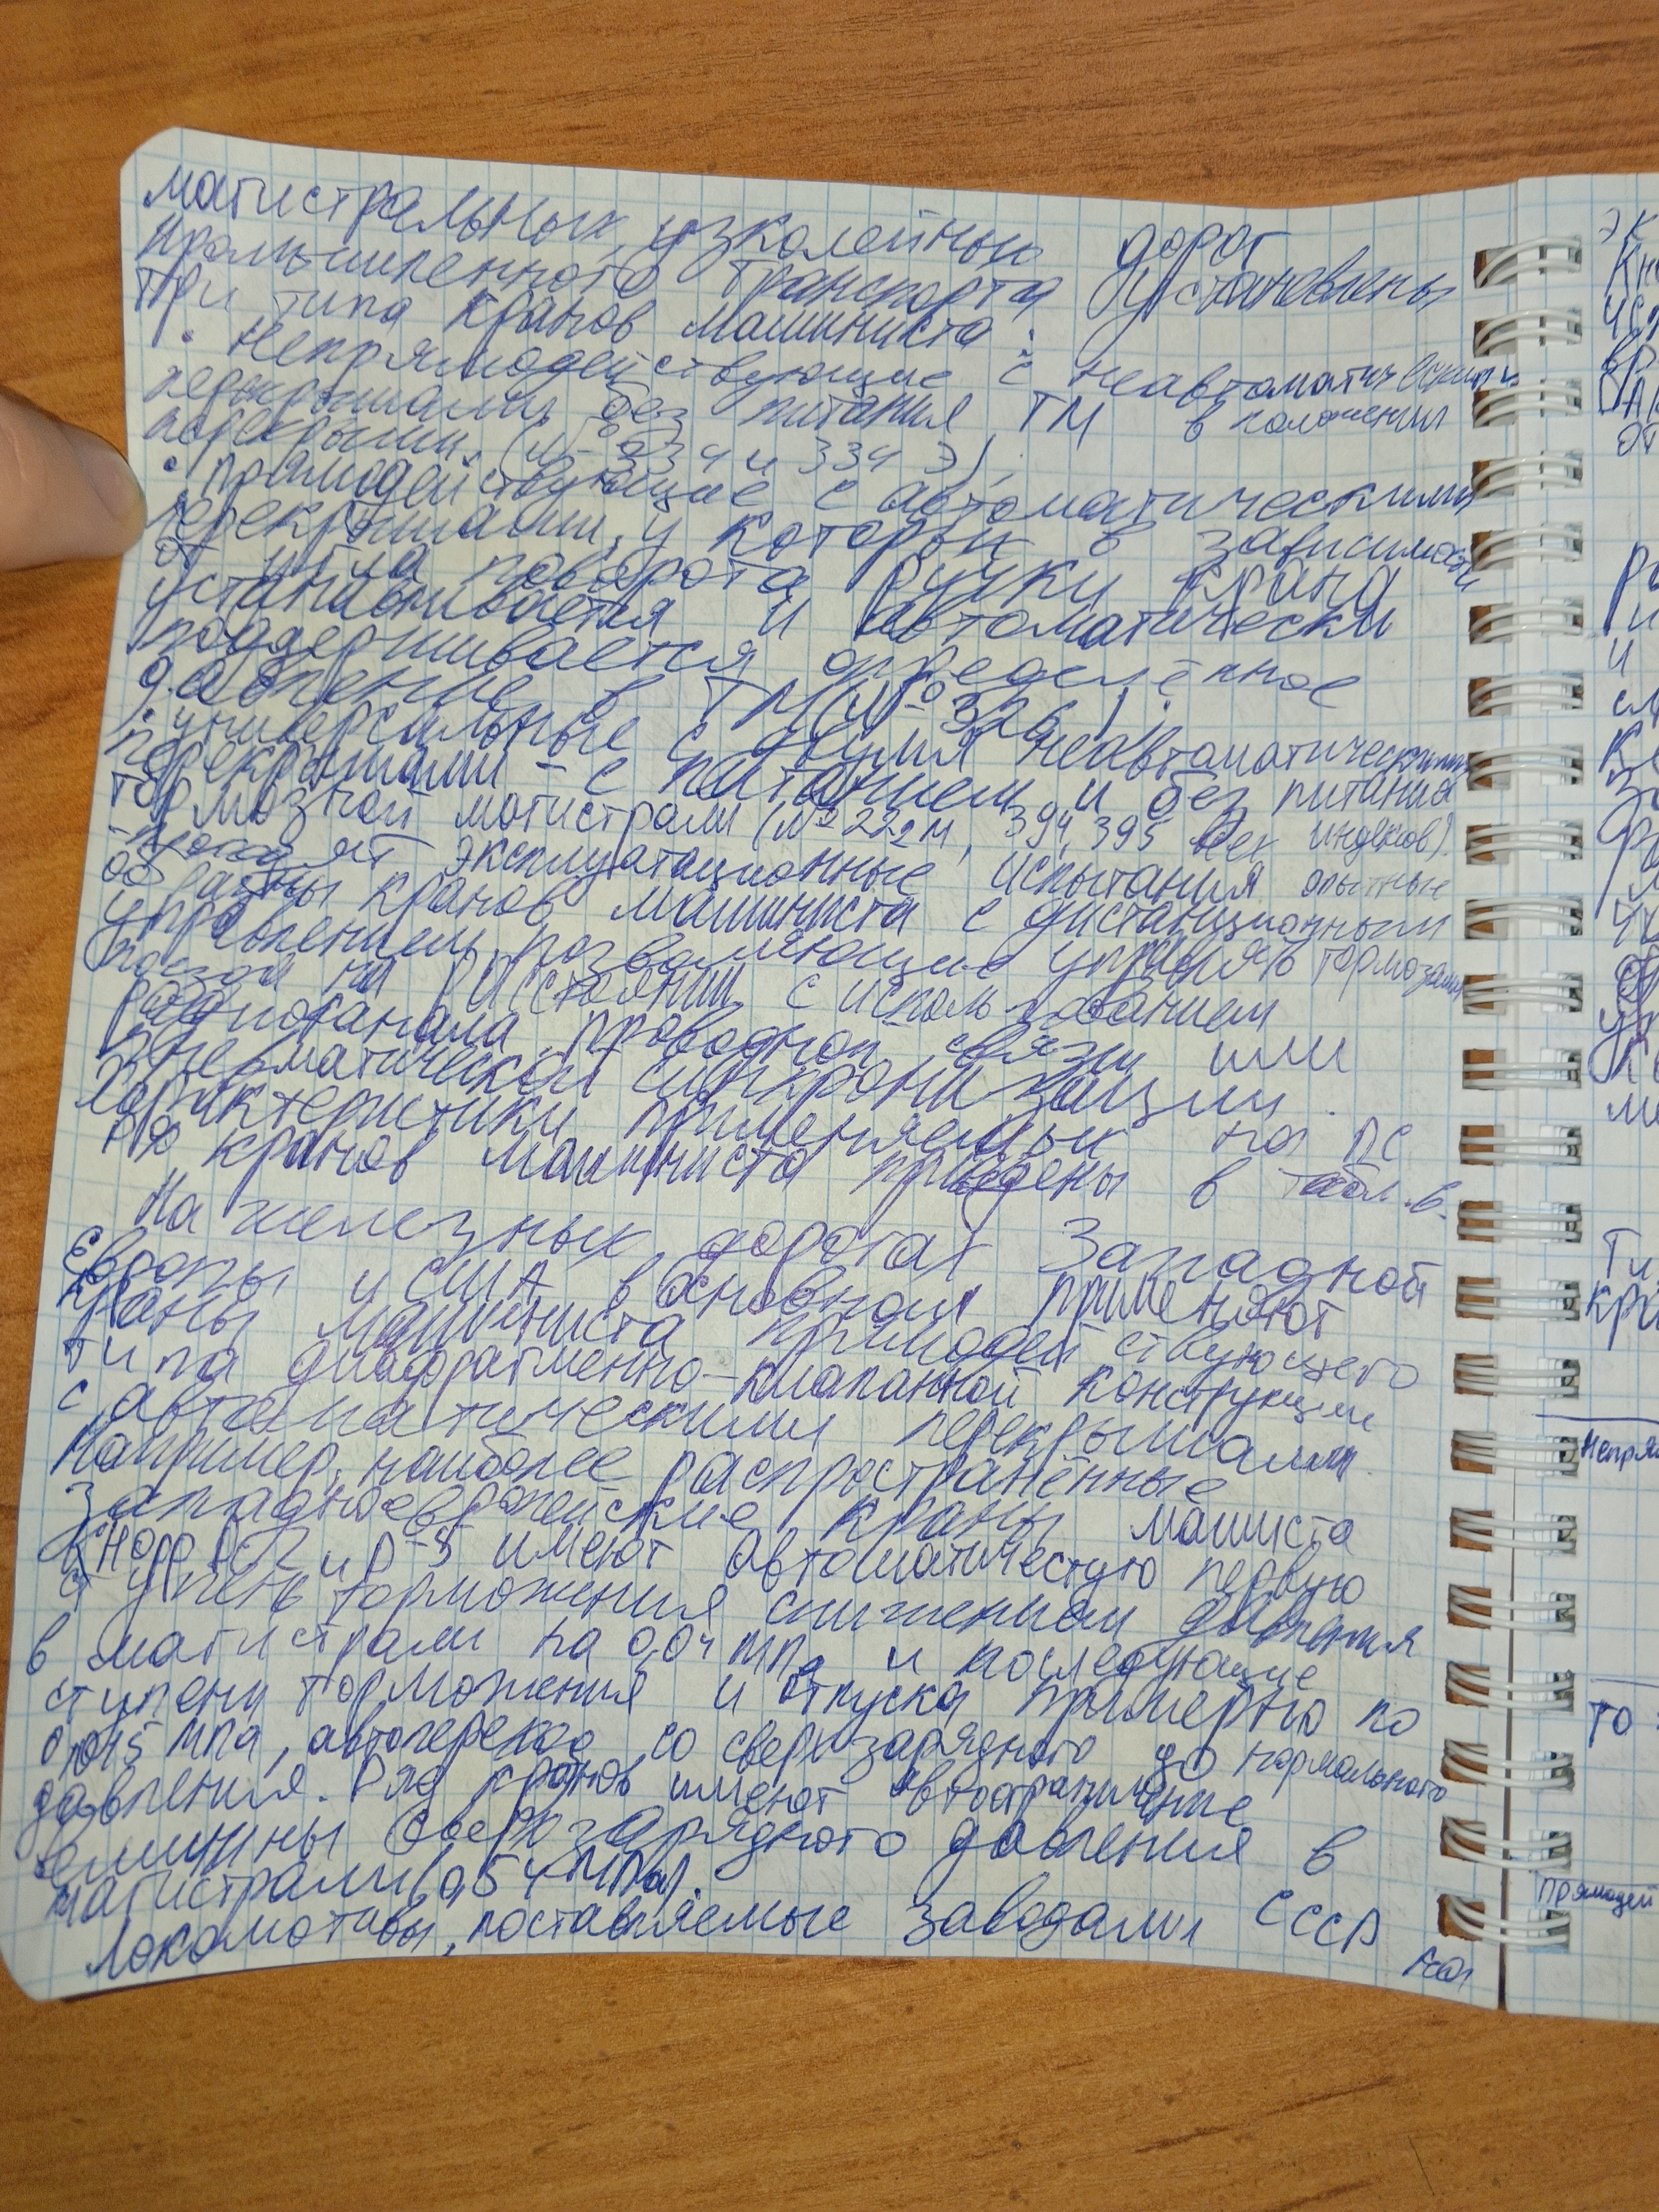 магистральных, узколейных дорог
промышленного транспорта установлены
три типа кранов машиниста:
• Непрямодействующие с неавтоматическими
перекрышами без питания ТМ в положении
перекрыши (№ 334 и 334 Э);
• прямодействующие с автоматическими
перекрышами, у которых в зависимости
от угла поворота ручки крана
устанавливается и автоматически
поддерживается определённое
давление в ТМ (№ 326);
• универсальные с двумя неавтоматическими
перекрышами – с питанием и без питания
тормозной магистрали (№ 222М, 394, 395 всех индексов).
- проходят эксплуатационные испытания опытные
образцы кранов машиниста с дистанционным
управлением, позволяющие управлять тормозами
поезда на расстоянии с использованием
радиоканала, проводной связи или
пневматической синхронизации.
Характеристики применяемых на ПС
кранов машиниста приведены в табл. 6.
На железных дорогах Западной
Европы и США в основном применяют
краны машиниста прямодействующего
типа диафрагменно-клапанной конструкции
с автоматическими перекрышами.
Например, наиболее распространённые
западноевропейские краны машиста
Кнорр и D-5 имеют автоматичестую первую
ступень торможения снижением давления
в магистрали на 0,04 МПа и последующие
ступени торможения и отпуска примерно по
0,015 МПа, автопереход со сверхзарядного до нормального
давления. Ряд кранов имеют автоограничение
величины сверхзарядного давления в
магистрали (0,54 МПа).
Локомотивы, поставляемые заводами СССР
эк
Ти
кра
Непря
то
прямодей